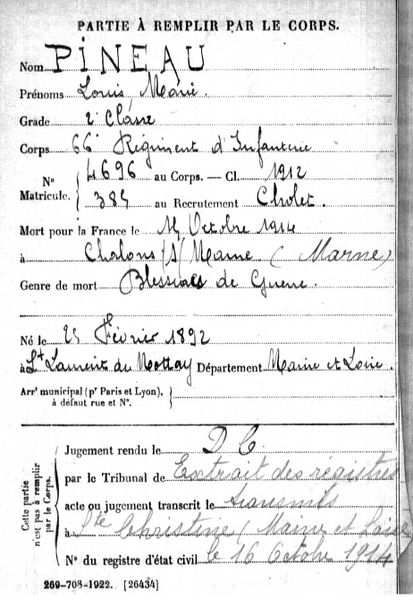 PARTIE À REMPLIR PAR LE CORPS.
Nom PINEAU
Prénoms Louis Marie.
Grade 2e Classe
Corps 66e Régiment d'Infanterie
N° Matricule. { 4696 au Corps. — Cl. 1912
384 au Recrutement Cholet.
Mort pour la France le 15 Octobre 1914
à Chalons s/ Marne (Marne)
Genre de mort Blessures de Guerre.
Né le 25 Février 1892
à St Laurent du Mottay Département Maine et Loire.
Arrt municipal (pr Paris et Lyon), }
à défaut rue et N°.
Cette partie n'est pas à remplir par le Corps.
Jugement rendu le D C.
par le Tribunal de Extrait des régistres
acte ou jugement transcrit le transmis
à Ste Christine (Maine et Loire
N° du registre d'état civil le 16 Octobre 1914
269-708-1922. [26434]